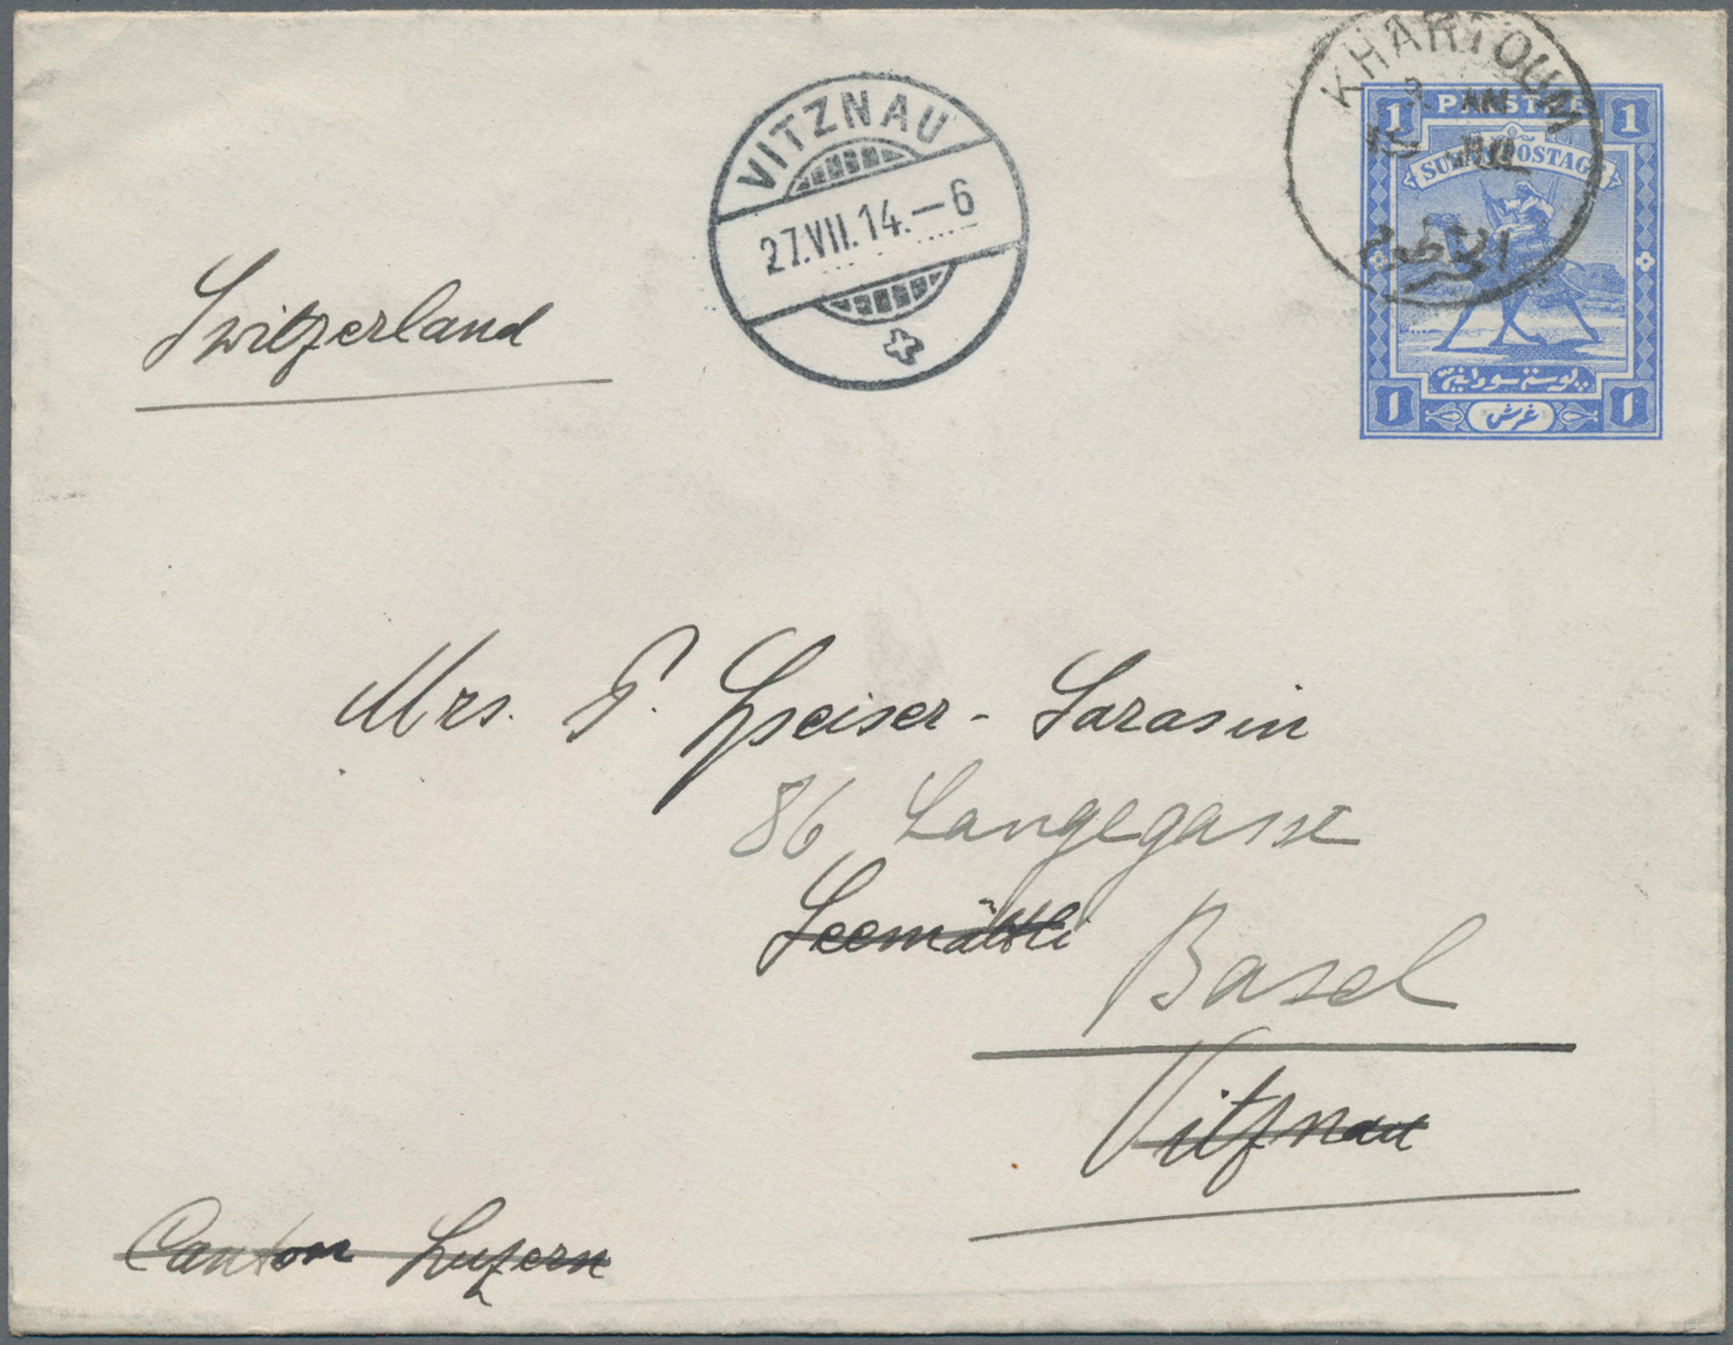 KHARTOUM
AM
15 JUL
الخرطوم
1 PIASTRE 1
SUDAN POSTAGE
پوسته سودانية
١ غرش ١
VITZNAU
27.VII.14.—6
Switzerland
Mrs. P. Speiser-Sarasin
86 Langegasse
Seemättli
Basel
Vitznau
Canton Luzern